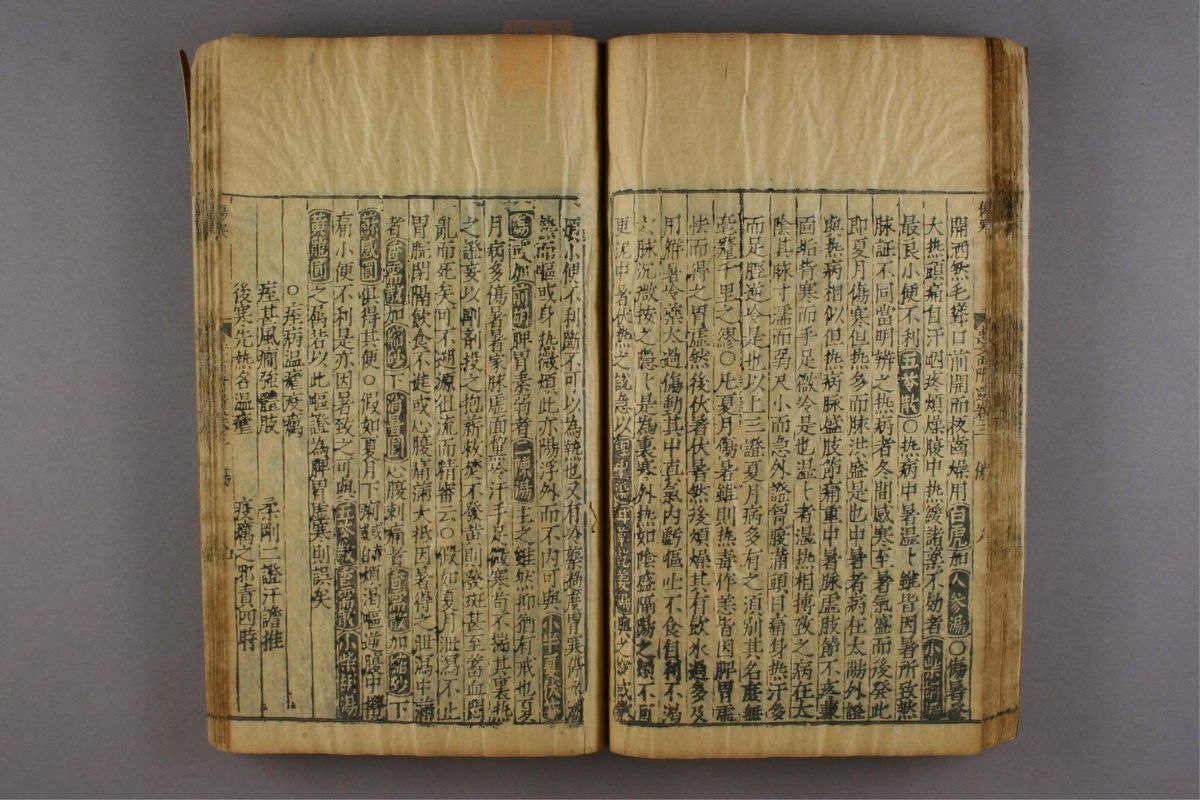 開西然毛聳口前開而板齒燥用白虎加人參湯○傷暑發
大熱頭痛自汗咽疼煩燥腹中熱緩諸藥不効者小柴胡湯
最良小便不利五苓散○熱病中暑温卜雖皆因暑所致然
脉証不同當明辨之熱病者冬間感寒至暑氣盛而後發此
即夏月傷寒但熱多而脉洪盛是也中暑者病在太陽外證
與熱病相似但熱病脉盛肢節痛重中暑脉虚肢節不疼兼
面垢背寒而手足微冷是也温卜者濕熱相搏致之病在太
陰其脉寸濡而弱尺小而急外證胷腹滿頭目痛身熱汗多
而足脛逆冷是也以上三證夏月病多有之須別其名庶無
毫釐千里之繆○凡夏月傷暑雖則熱毒作恙皆因脾胃
怯而得之胃虚然後伏暑伏暑然後煩燥其有飲水過多及
用解暑冷藥太過傷動其中直氣内虧嘔吐不食自利不渇
六脉沉微按之隱卜是為裏寒外熱如陰盛隔陽之類不可
更泥中暑伏熱之説急以理中湯
煩小便不利斷不可以為熱也又有冷藥
燥而嘔或身熱微煩此亦陽浮外而不内可與小半夏茯苓
湯或加前胡脾胃素弱者二陳湯主之雖然抑猶有戒也夏
月病多傷暑暑家脉虚面垢冷汗手足微寒苟不揣其裏熱
之證妄以剛劑投之抱薪救焚不發黄則發斑甚至蓄血悶
亂而死矣可不遡源徂流而精審云○假如夏月泄瀉不止
胃脘閉隔飲食不進或心腹痛滿大抵因暑得之泄瀉中滿
者香需散加縮砂下消暑圓心腹刺痛者香需散加縮砂下
蘇感圓俱得其便○假如夏月下痢或赤或白煩渇嘔逆腹中攪
痛小便不利是亦因暑致之可與五苓散香需散小柴胡湯
黄龍圓之屬若以此嘔證為脾胃虚寒則誤矣
○痓病温瘧疫癘
痓其風癇強體肢　柔剛二證汗譫推
後寒先熱名温瘧　疫癘之邪責四時